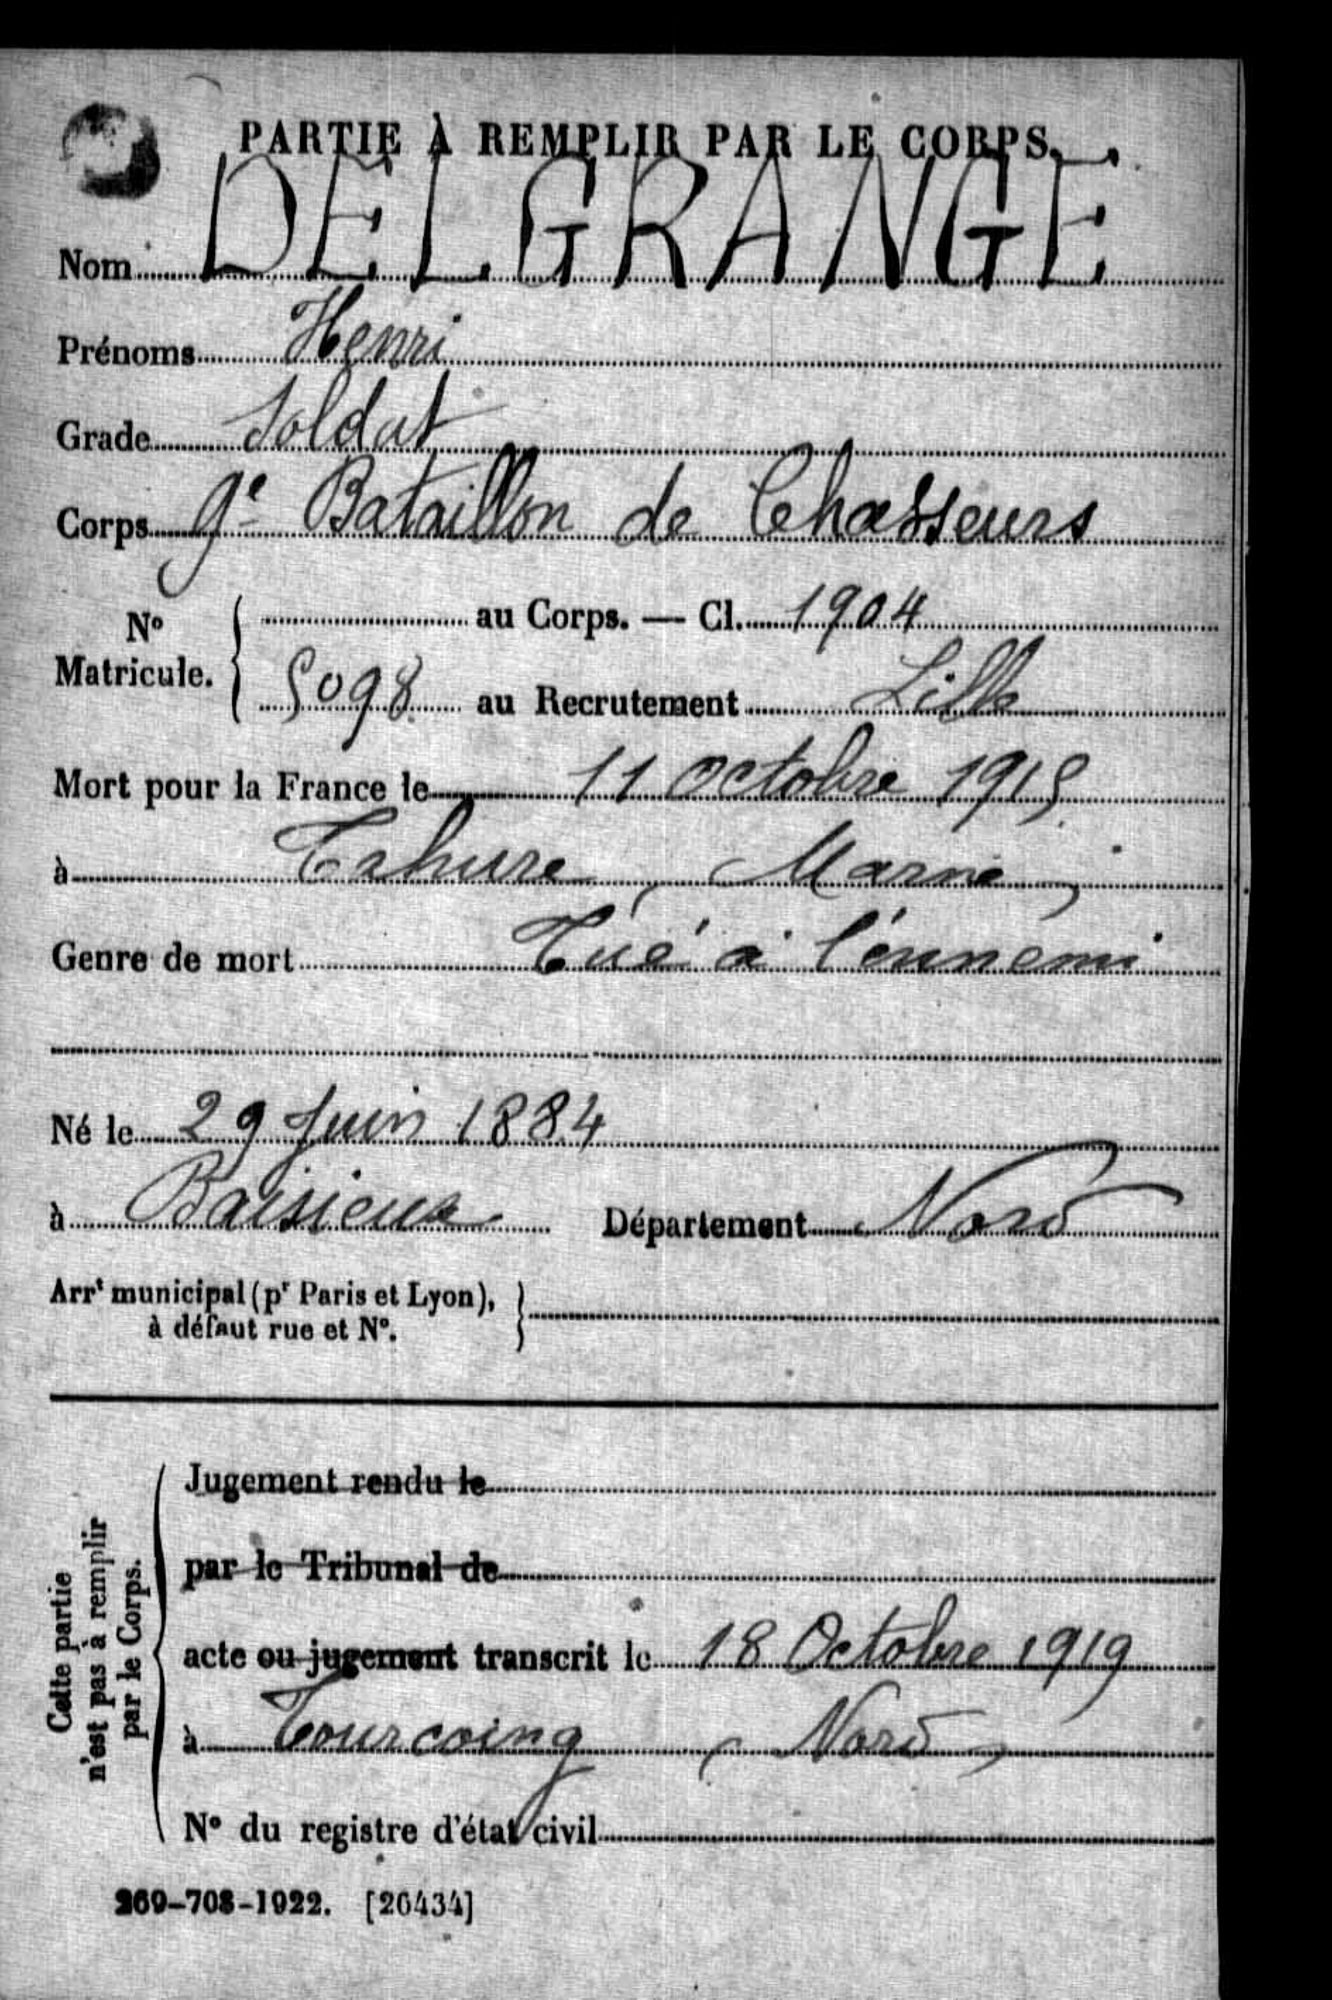 PARTIE À REMPLIR PAR LE CORPS.
Nom DELGRANGE
Prénoms Henri
Grade Soldat
Corps 9e Bataillon de Chasseurs
No Matricule. { au Corps. — Cl. 1904
5098 au Recrutement Lille
Mort pour la France le 11 Octobre 1915
à Tahure (Marne)
Genre de mort Tué à l'énnemi
Né le 29 Juin 1884
à Baisieux Département Nord
Arrt municipal (pr Paris et Lyon), }
à défaut rue et No.
Cette partie
n'est pas à remplir
par le Corps.
Jugement rendu le
par le Tribunal de
acte ou jugement transcrit le 18 Octobre 1919
à Tourcoing (Nord)
No du registre d'état civil
269-708-1922. [26434]